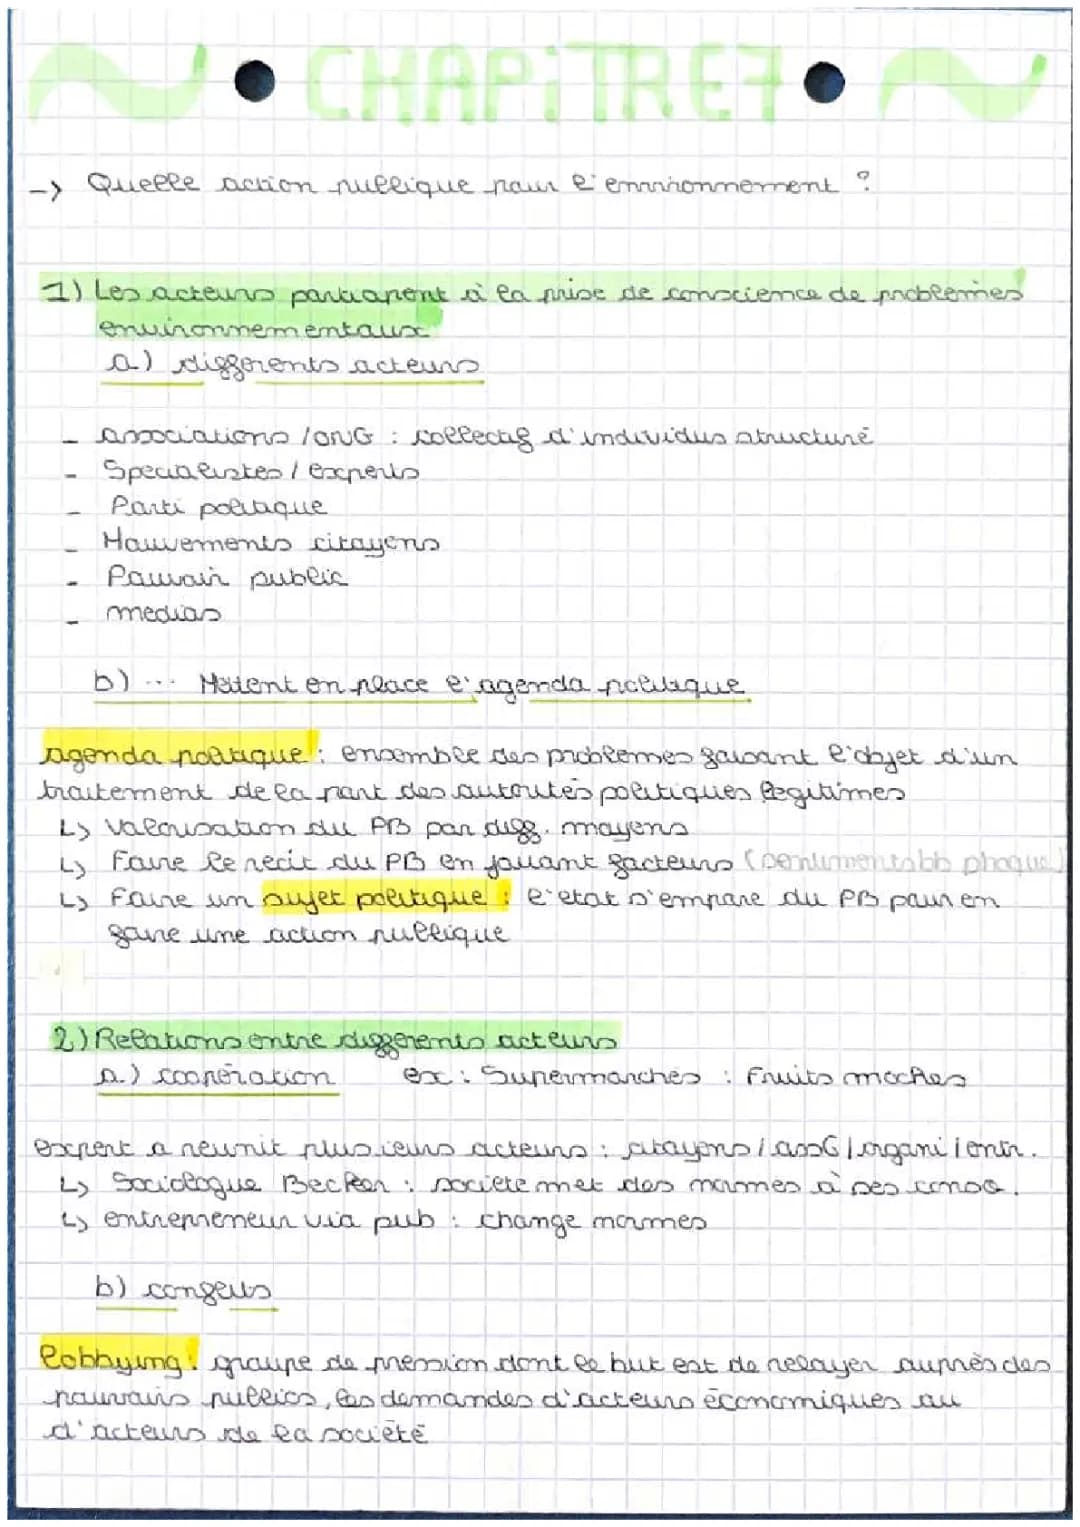 CHAPITRE 7
-> Quelle action publique pour l'environnement ?
1) Les acteurs participent à la prise de conscience de problèmes
environnementaux
a) différents acteurs
- associations / ONG : collectif d'individus structuré
- Specialistes / experts
- Parti politique
- Mouvements citoyens
- Pouvoir public
- medias
b) ... Mettent en place l'agenda politique
agenda politique : ensemble des problèmes faisant l'objet d'un
traitement de la part des autorités politiques legitimes
↳ Valorisation du PB par diff. moyens
↳ Faire le recit du PB en jouant facteurs (sentiments bb phoque)
↳ Faire un sujet politique : l'etat s'empare du PB pour en
faire une action publique
2) Relations entre différents acteurs
a) coopération ex : Supermarchés : Fruits moches
expert a reunit plusieurs acteurs : citoyens / assG / organi / entr.
↳ Sociologue Becker : société met des normes à ses conso.
↳ entrepreneur via pub : change normes
b) conflits
lobbying : groupe de pression dont le but est de relayer auprès des
pouvoirs publics, les demandes d'acteurs économiques ou
d'acteurs de la société